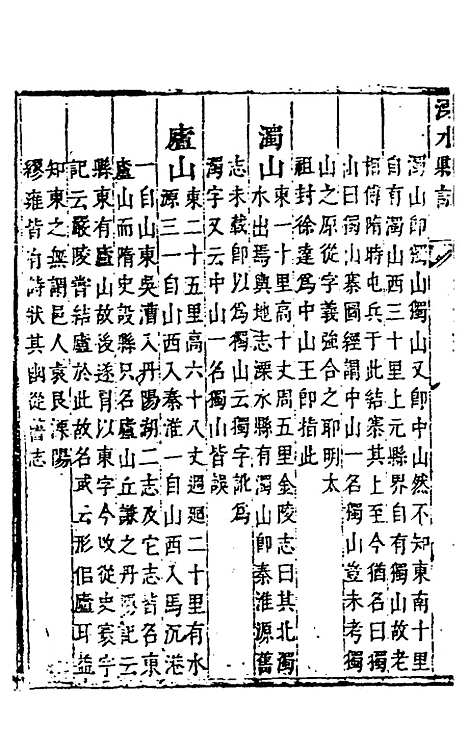 溧水縣志
濁山即獨山獨山又即中山然不知東南十里
自有濁山西三十里上元縣界自有獨山故老
相傳隋時屯兵于此結寨其上至今猶名曰獨
山曰獨山寨圖經謂中山一名獨山豈未考獨
山之原從字義強合之耶明太
祖封徐達為中山王即指此
濁山東一十里高十丈周五里金陵志曰其北濁
水出焉輿地志溧水縣有濁山即秦淮源舊
志未載即以為獨山云獨字訛為
濁字又云中山一名獨山皆誤
廬山東二十五里高六十八丈週廻二十里有水
源三一自山西入秦淮一自山西入馬沉港
一自山東吳漕入丹陽湖二志及它志皆名東
廬山而隋史設縣只名廬山丘謙之丹陽記云
縣東有廬山故後遂冐以東字今攺從史寰宇
記云嚴陵嘗結廬於此故名或云形佀廬耳益
知東之無謂邑人袁艮溧陽
繆雍皆有詩狀其幽從舊志